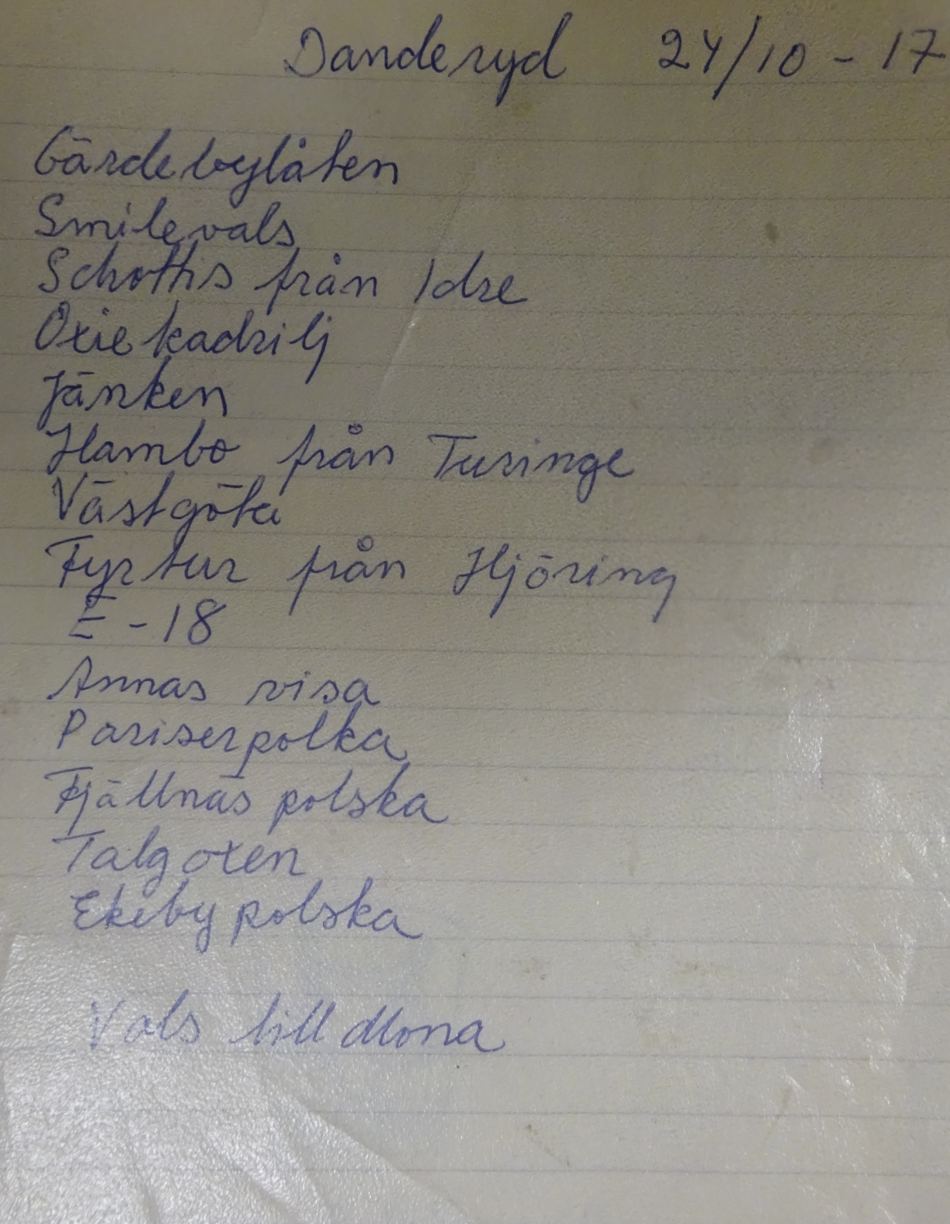 Danderyd 24/10 - 17
Gärdebylåten
Smilevals
Schottis från Idre
Oxiekadrilj
Jänken
Hambo från Turinge
Västgöta
Fyrtur från Hjöring
E-18
Annas visa
Pariserpolka
Fjällnäs polska
Talgoxen
Ekeby polska
Vals till Mona